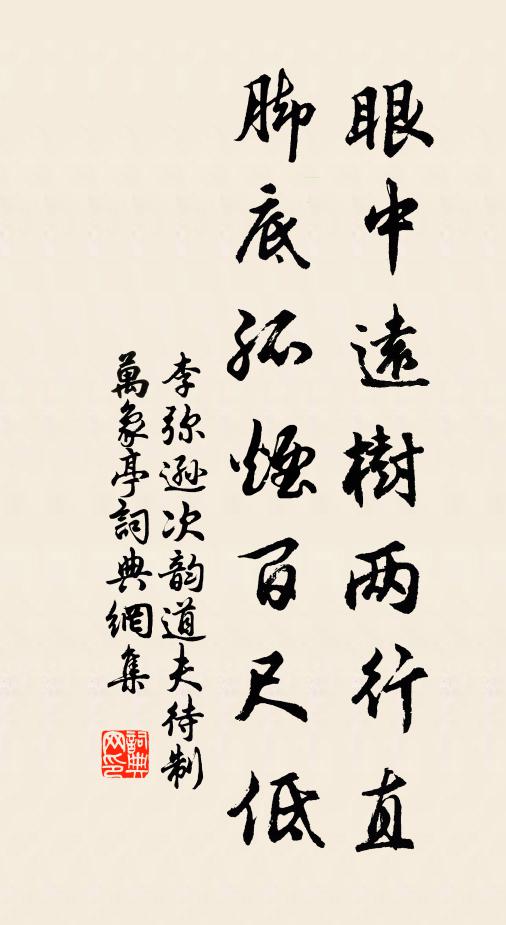 眼中遠樹两行直
脚底孤煙百尺低
李弥遜次韵道夫待制
萬象亭詞典網集
詞典
网印